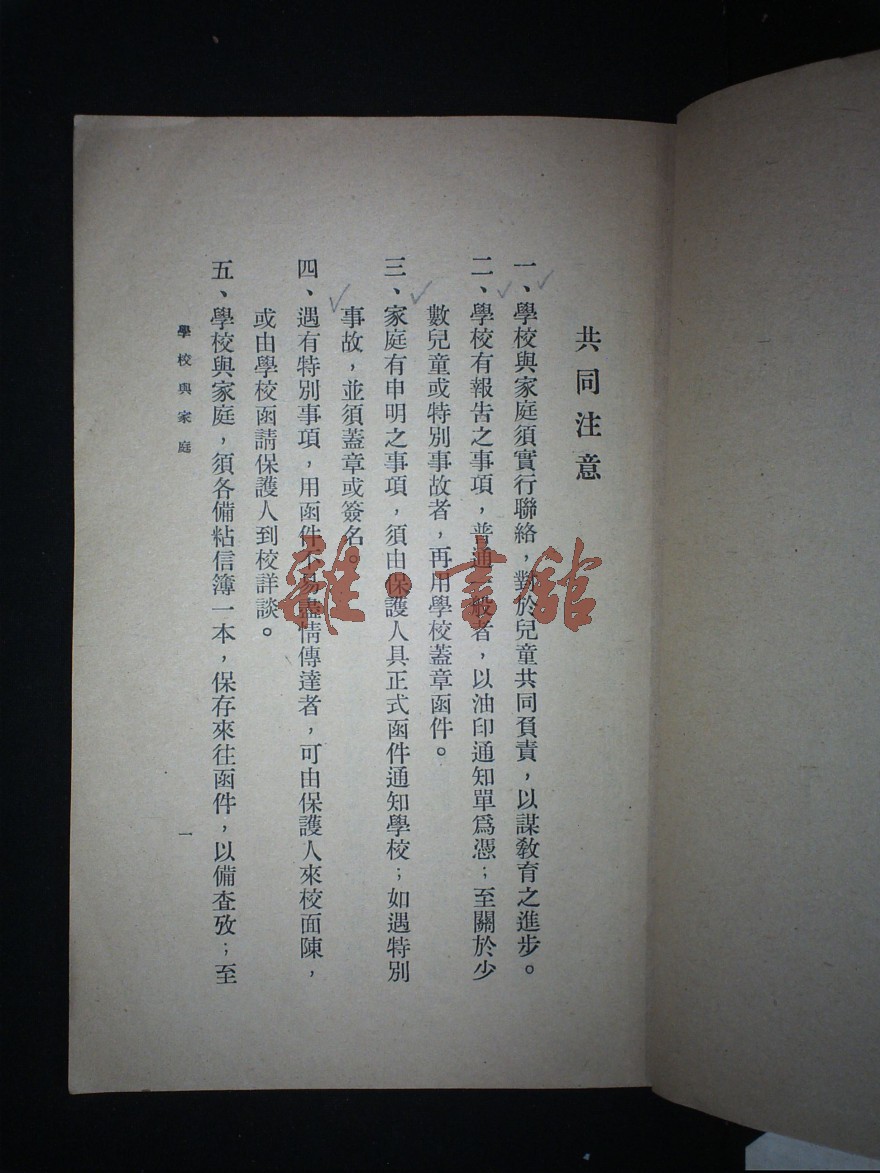 共同注意
一、學校與家庭須實行聯絡，對於兒童共同負責，以謀教育之進步。
二、學校有報告之事項，普通一般者，以油印通知單爲憑；至關於少
數兒童或特別事故者，再用學校蓋章函件。
三、家庭有申明之事項，須由保護人具正式函件通知學校；如遇特別
事故，並須蓋章或簽名。
四、遇有特別事項，用函件不易盡情傳達者，可由保護人來校面陳，
或由學校函請保護人到校詳談。
五、學校與家庭，須各備粘信簿一本，保存來往函件，以備查攷；至
學校與家庭
一
雜·書館